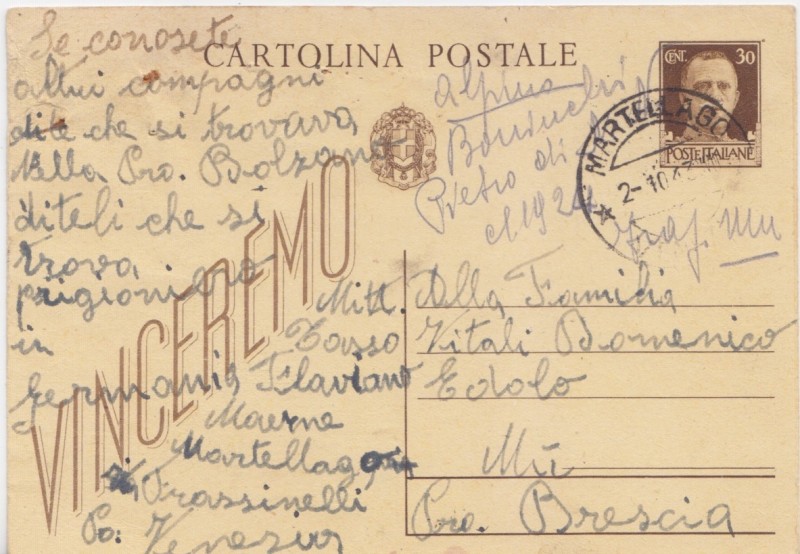 CARTOLINA POSTALE
CENT. 30
POSTE ITALIANE
MARTELLAGO
2-10.43
VINCEREMO
Se conosete
altri compagni
dite che si trovava
Nella Pro. Bolzano
diteli che si
trova
prigioniero
in
germania
alpino
Pietro di
cl 1924
fraz. Mu
Mitt.
Tosso
Flaviano
Maerne
Martellago
Frassinelli
Po. Venezia
Alla Familia
Vitali Domenico
Edolo
Mù
Pro. Brescia